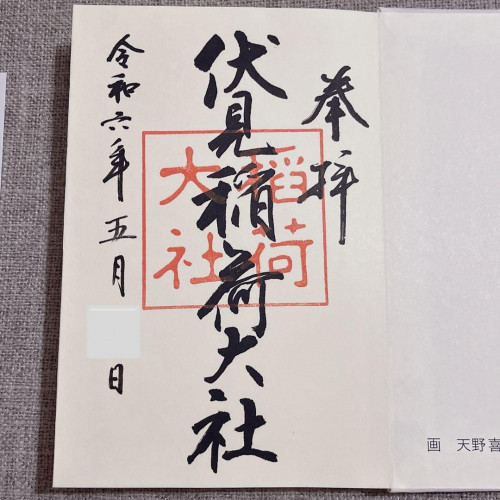 奉拝
伏見稲荷大社
稲荷
大社
令和六年五月 日
画 天野喜